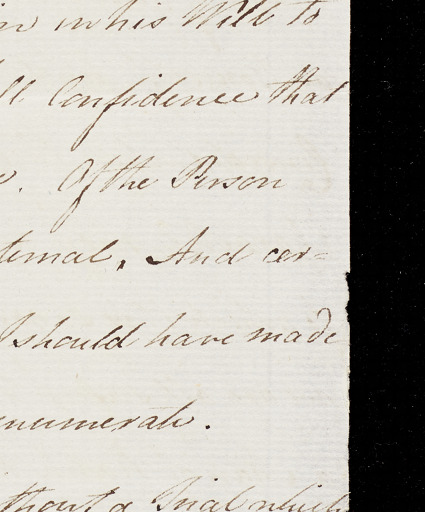 in his Will to
ll Confidence that
Of the Person
ternal. And cer=
I should have made
enumerate.
thout a Trial which